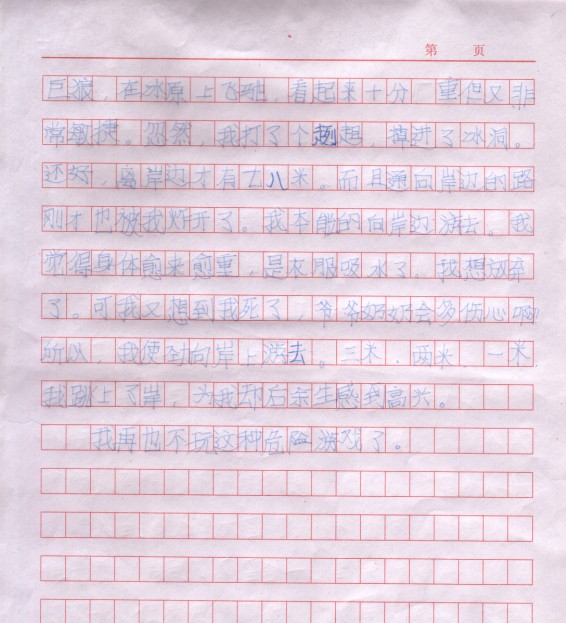 第 页
巨狼，在冰原上飞驰，看起来十分 重但又非
常敏捷。忽然，我打了个趔趄，掉进了冰洞。
还好，离岸边才有七八米。而且通向岸边的路
刚才也被我炸开了。我本能的向岸边游去。我
觉得身体愈来愈重，是衣服吸水了。我想放弃
了。可我又想到我死了，爷爷奶奶会多伤心啊
所以，我使劲向岸上游去。三米，两米，一米，
我跳上了岸，为我却后余生感到高兴。
我再也不玩这种危险游戏了。